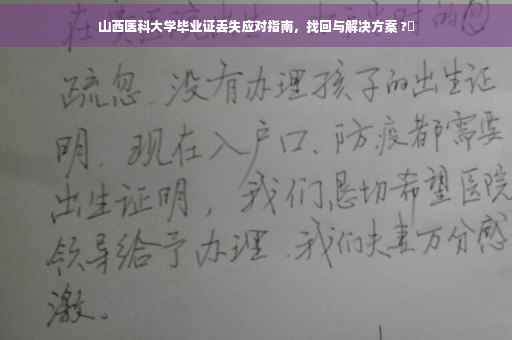 山西医科大学毕业证丢失应对指南，找回与解决方案 ?
疏忽.没有办理孩子的出生证
明.现在入户口、防疫都需要
出生证明，我们恳切希望医院
领导给予办理.我们夫妻万分感
激。